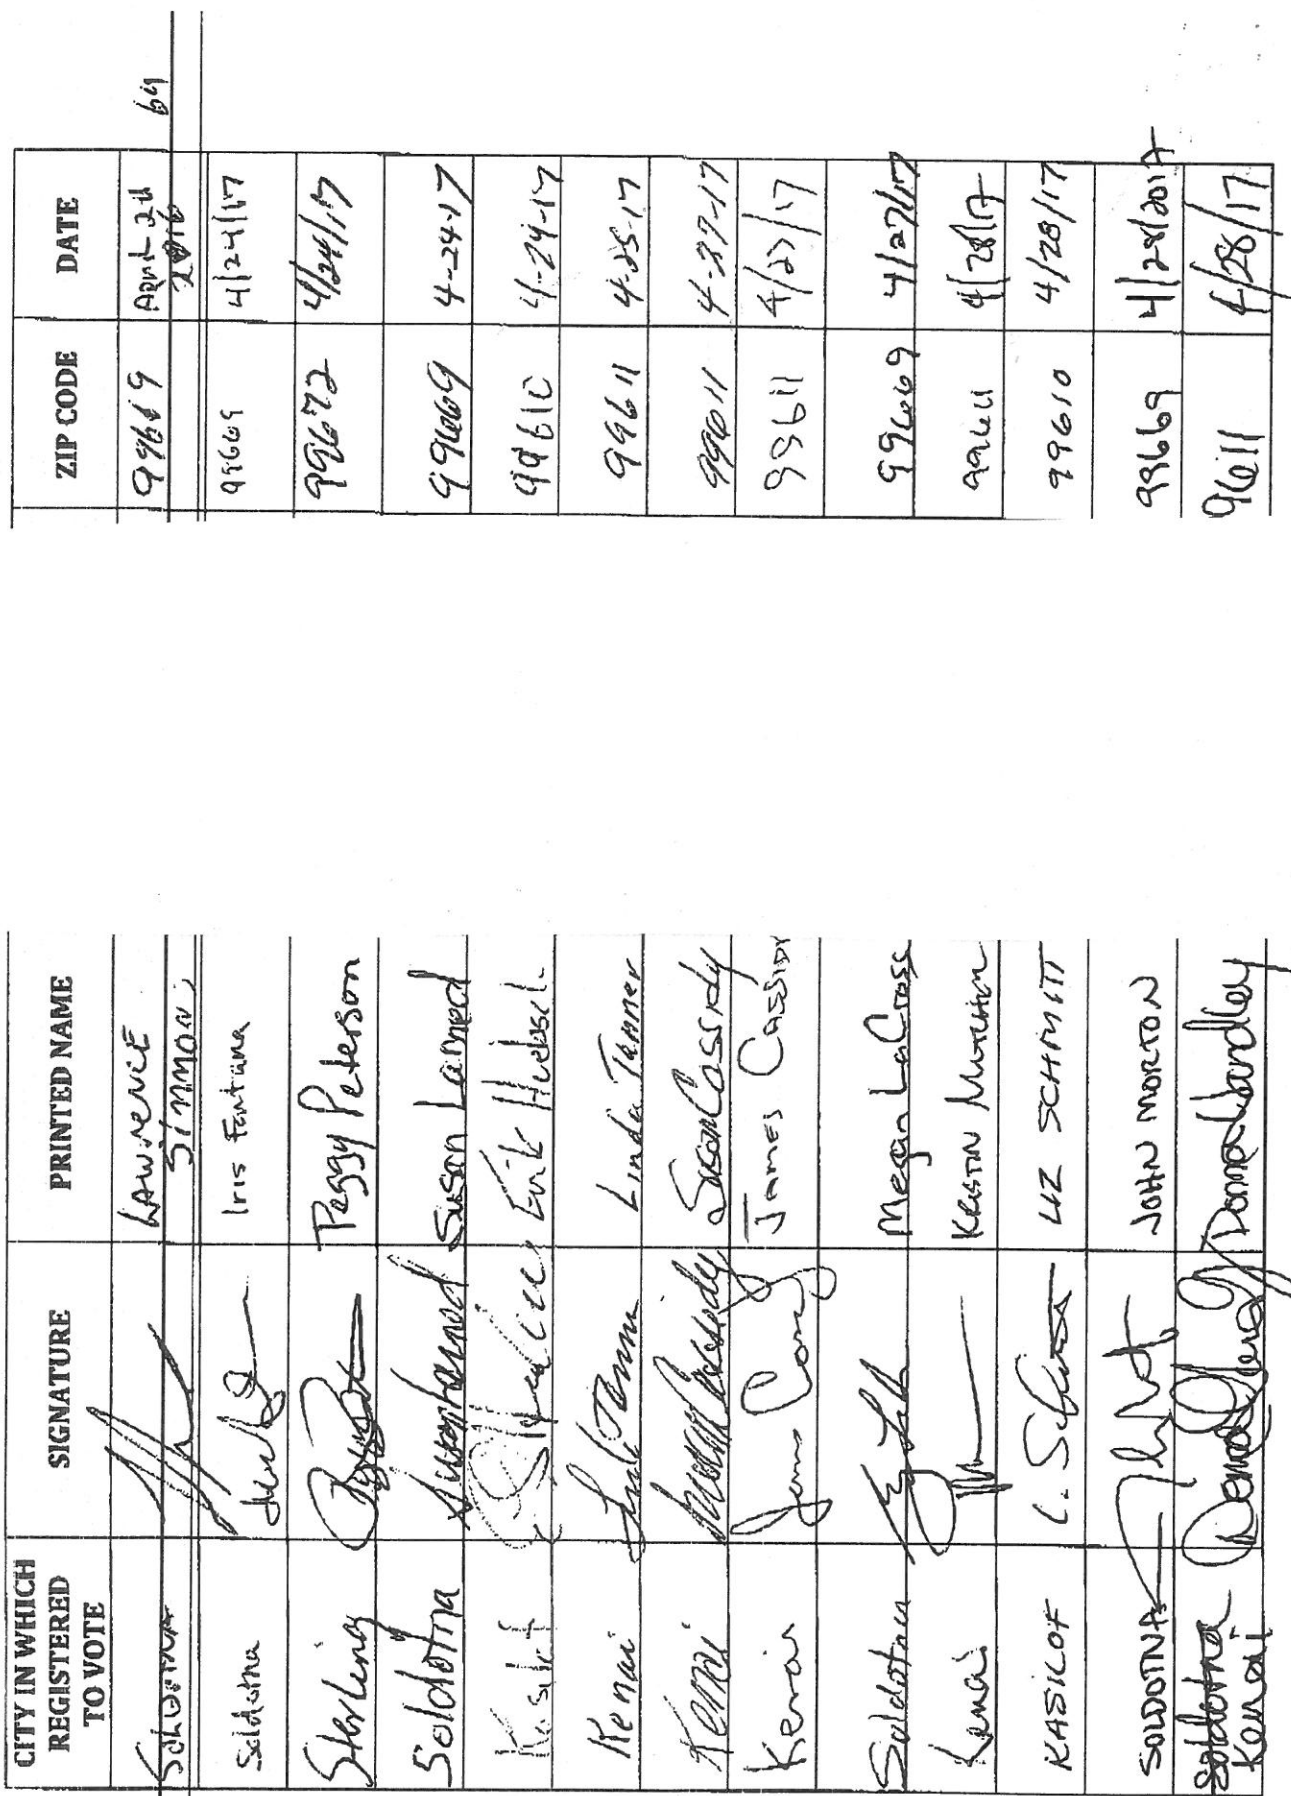 CITY IN WHICH REGISTERED TO VOTE SIGNATURE PRINTED NAME ZIP CODE DATE
Soldotna LAWRENCE SIMMONS 99669 April 24 2016
Soldotna Iris Fontana 99669 4/24/17
Sterling Peggy Peterson 99672 4/24/17
Soldotna Susan Larned Susan Larned 99669 4-24-17
Kasilof Erik Huebsch 99610 4-24-17
Kenai Linda Tanner 99611 4-25-17
Kenai Susan Cassidy Susan Cassidy 99611 4-27-17
Kenai JAMES CASSIDY 99611 4/27/17
Soldotna Megan LaCross 99669 4/27/17
Kenai KRISTIN 99611 4/28/17
KASILOF L. LIZ SCHMITT 99610 4/28/17
SOLDOTNA JOHN MORTON 99669 4/28/2017
Soldotna Kenai Donna Handley 9611 4/28/17